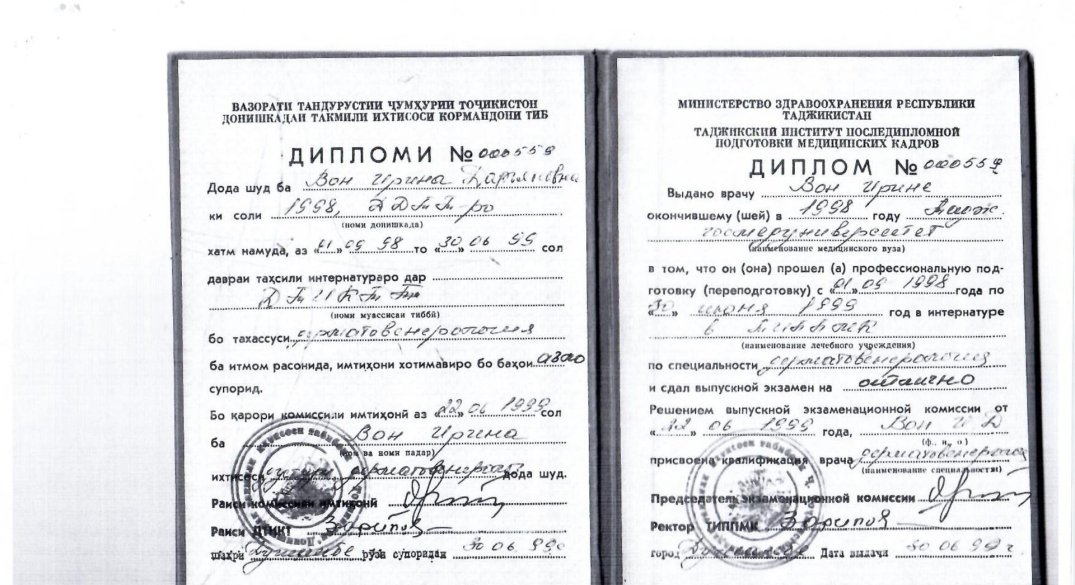 ВАЗОРАТИ ТАНДУРУСТИИ ҶУМҲУРИИ ТОҶИКИСТОН
ДОНИШКАДАИ ТАКМИЛИ ИХТИСОСИ КОРМАНДОНИ ТИБ
ДИПЛОМИ № 000559
Дода шуд ба Вон Ирина
ки соли 1998,
(номи донишкада)
хатм намуда, аз «01» 09 98 то «30» 06 99 сол
давраи таҳсили интернатураро дар
(номи муассисаи тиббӣ)
бо тахассуси дерматовенерология
ба итмом расонида, имтиҳони хотимавиро бо баҳои аъло
супорид.
Бо қарори комиссияи имтиҳонӣ аз «22» 06 1999 сол
ба Вон Ирина
(ном ва номи падар)
ихтисоси дода шуд.
Раиси комиссияи имтиҳонӣ
Раиси ДТИКТ Зарипов
шаҳри Душанбе рӯзи супоридан 30 06 99с
МИНИСТЕРСТВО ЗДРАВООХРАНЕНИЯ РЕСПУБЛИКИ
ТАДЖИКИСТАН
ТАДЖИКСКИЙ ИНСТИТУТ ПОСЛЕДИПЛОМНОЙ
ПОДГОТОВКИ МЕДИЦИНСКИХ КАДРОВ
ДИПЛОМ № 000559
Выдано врачу Вон Ирине
окончившему (шей) в 1998 году Тадж.
госмедуниверситет
(наименование медицинского вуза)
в том, что он (она) прошел (а) профессиональную под-
готовку (переподготовку) с «01» 09 1998 года по
«30» июня 1999 год в интернатуре
в ТИППМК
(наименование лечебного учреждения)
по специальности дерматовенерология
и сдал выпускной экзамен на отлично
Решением выпускной экзаменационной комиссии от
«22» 06 1999 года, Вон И Д
(ф. и. о.)
присвоена квалификация врача дерматовенеролога
(наименование специальности)
Председатель экзаменационной комиссии
Ректор ТИППМК Зарипов
город Душанбе Дата выдачи 30 06 99 г.